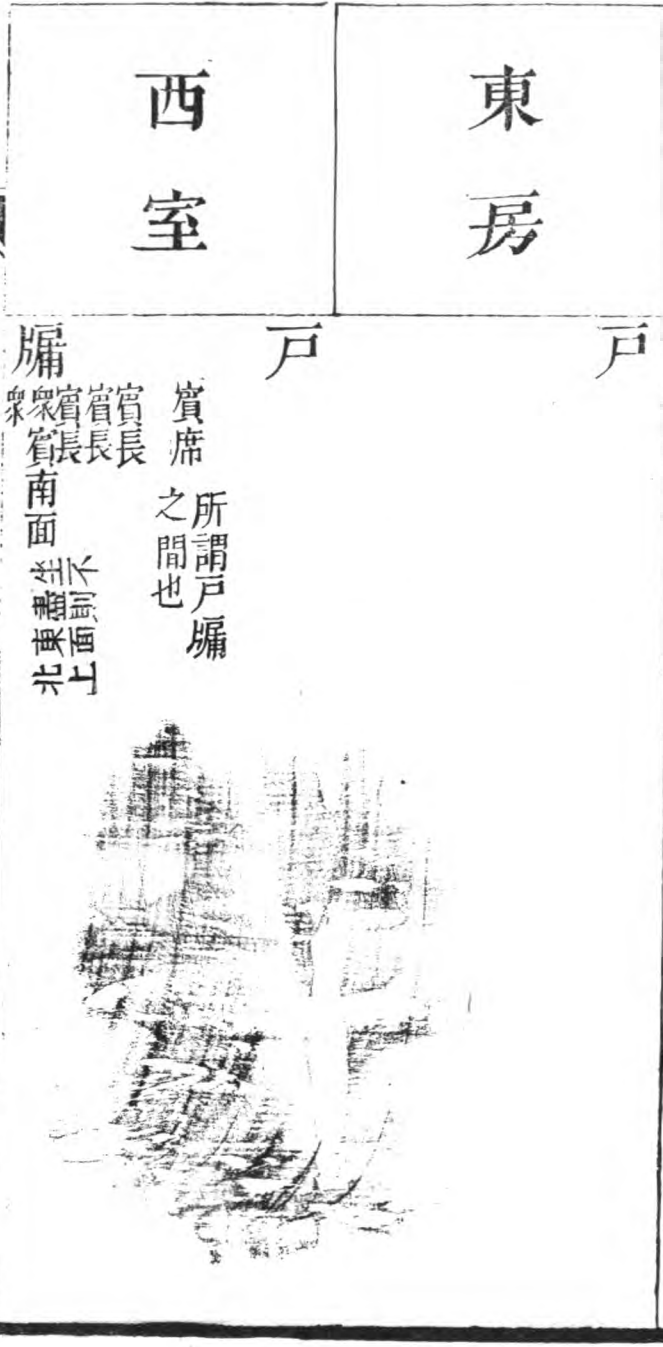 東房
西室
戸
戸
牖
賓席
所謂戸牖
之間也
賓長
賓長
賓長
衆賓南面
坐不
盡則
東面
北上
衆